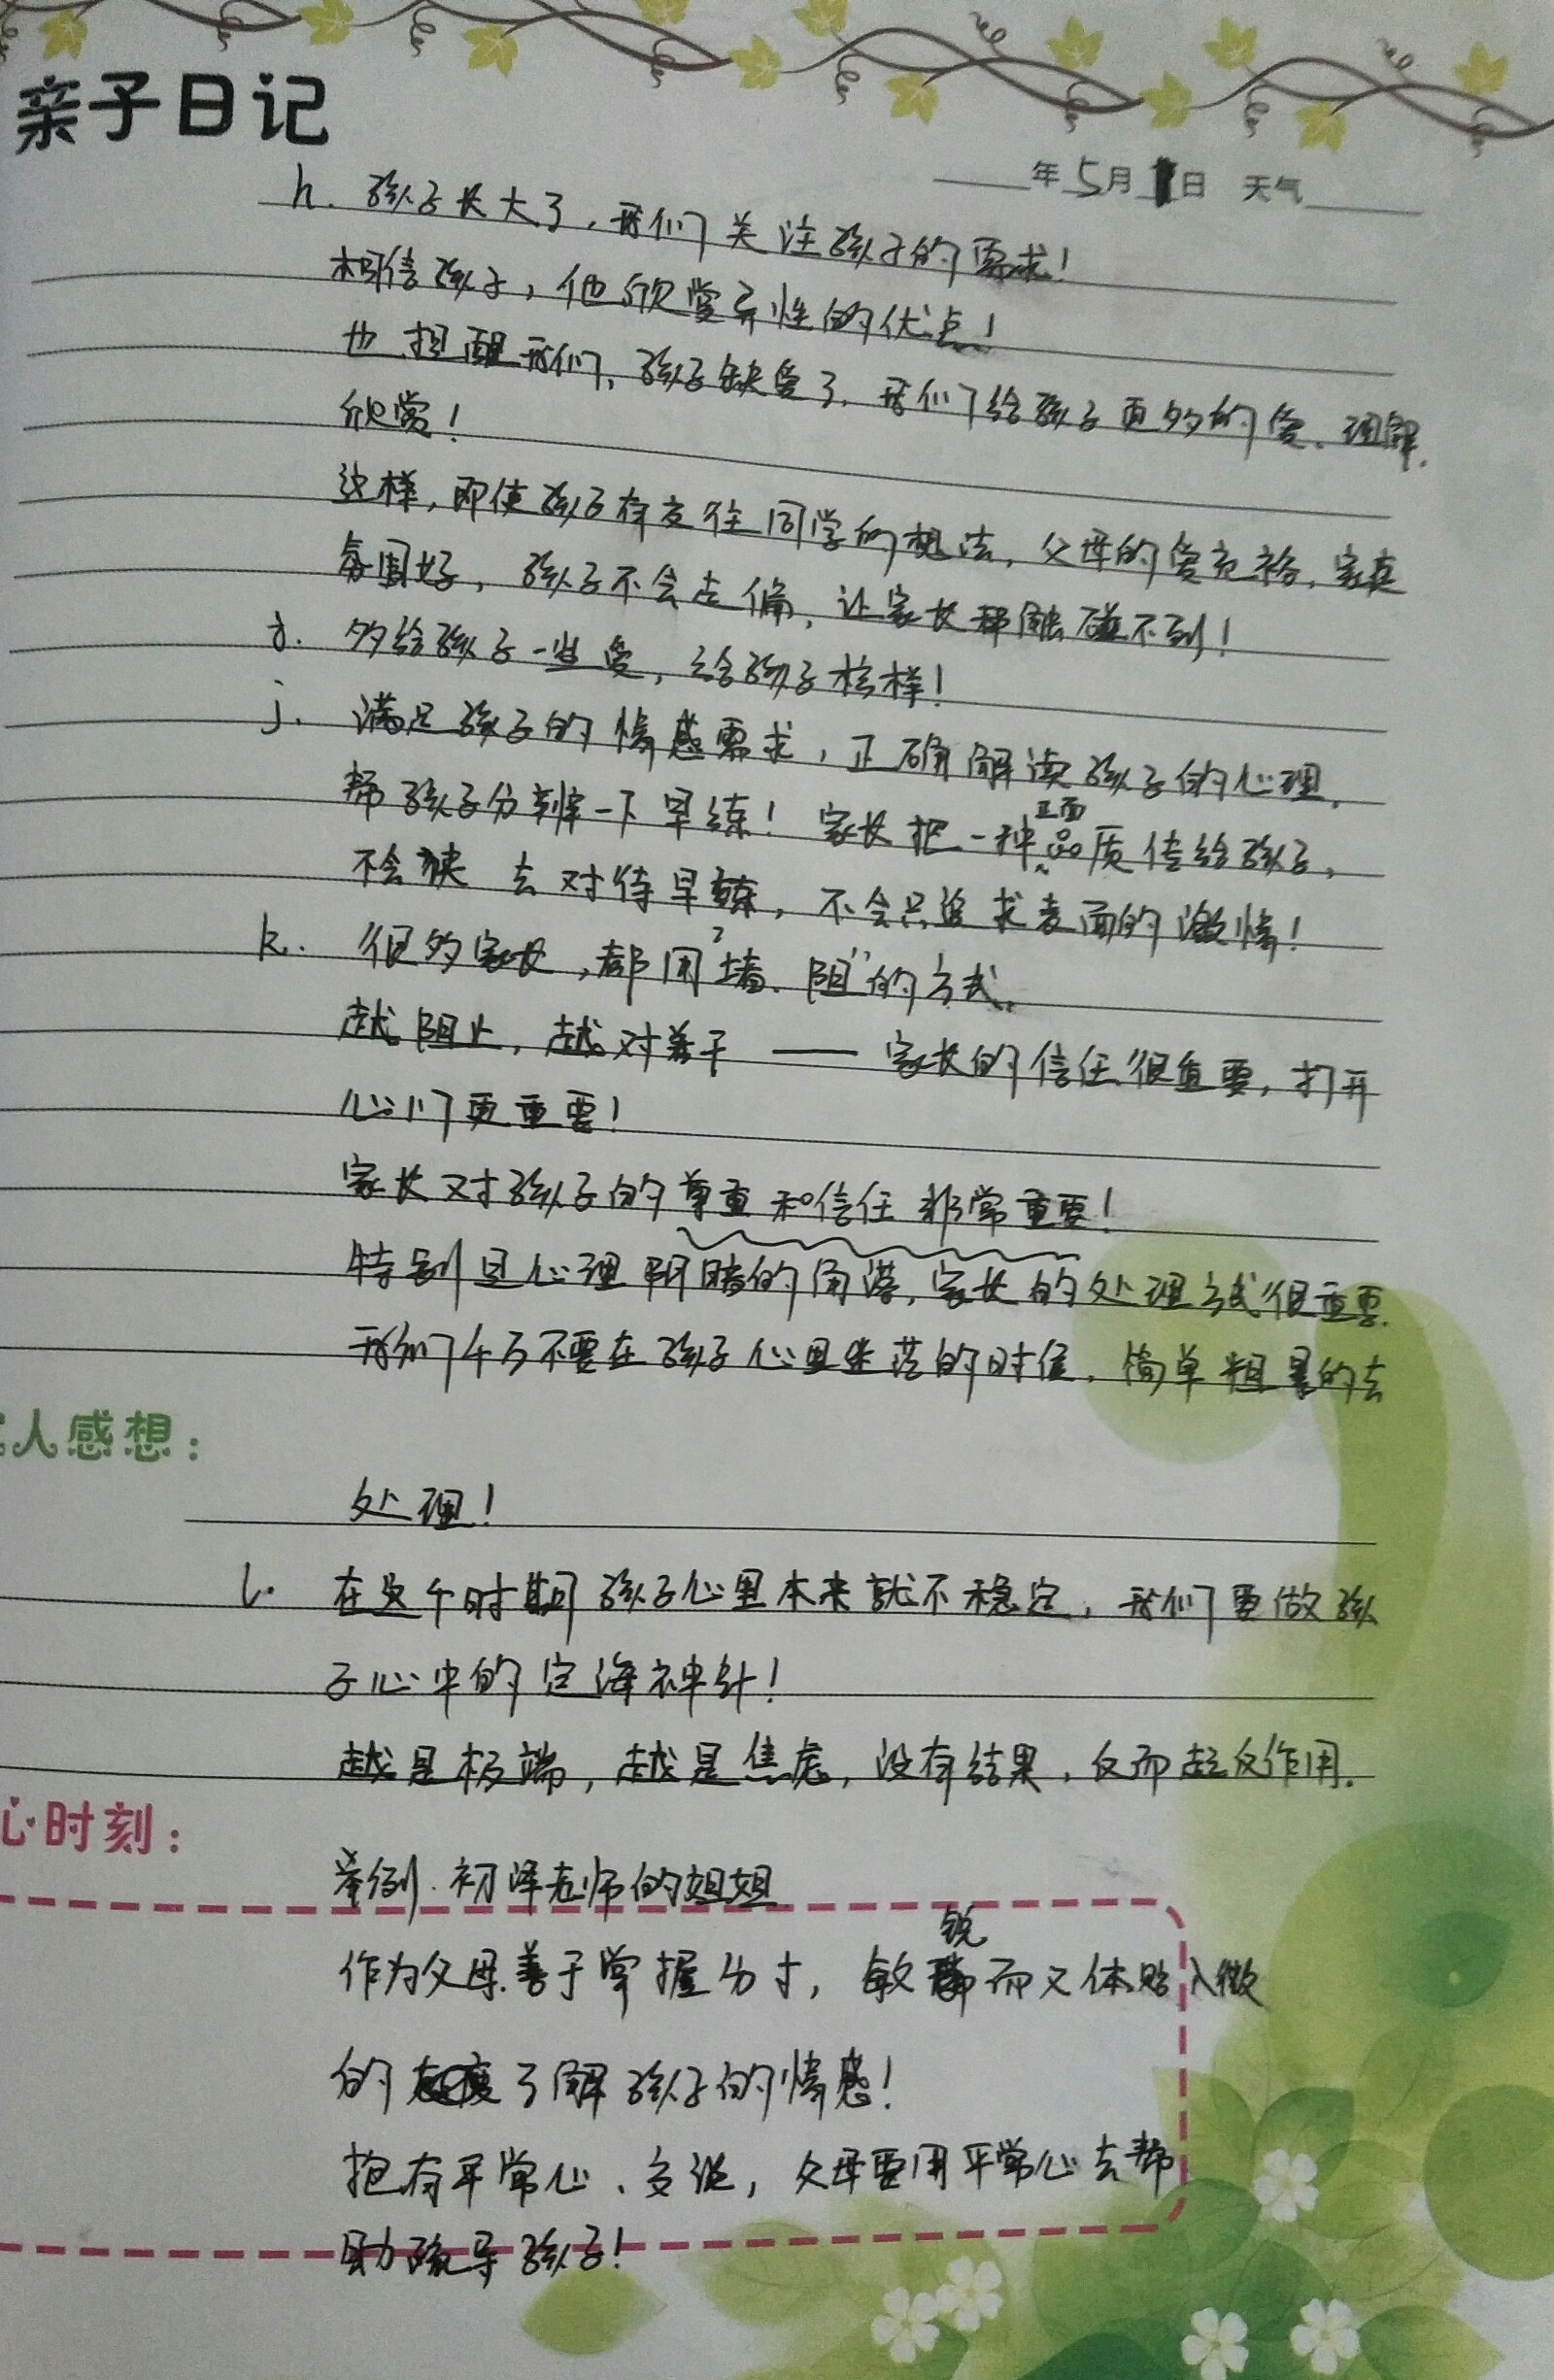 亲子日记
年5月1日 天气
h. 孩子长大了,我们关注孩子的需求!
相信孩子,他欣赏异性的优点!
也提醒我们,孩子缺爱了,我们给孩子更多的爱、理解、
欣赏!
这样,即使孩子有交往同学的想法,父母的爱充裕,家庭
氛围好,孩子不会走偏,让家长都触碰不到!
多给孩子一些爱,给孩子榜样!
j. 满足孩子的情感需求,正确解读孩子的心理,
帮孩子分辨一下早练!家长把一种正面品质传给孩子,
不会 去对待早 ,不会只追求表面的激情!
k. 很多家长,都用"堵、阻"的方式。
越阻止,越对着干——家长的信任很重要,打开
心门更重要!
家长对孩子的尊重和信任非常重要!
特别是心理阴暗的角落,家长的处理方式很重要.
我们千万不要在孩子心里 落的时候,简单粗暴的去
人感想:
处理!
l. 在这个时期孩子心里本来就不稳定,我们要做孩
子心中的定海神针!
越是极端,越是焦虑,没有结果,反而起反作用.
心时刻:
举例.初 老师的姐姐
作为父母善于掌握分寸,敏锐而又体贴入微
的态度了解孩子的情感!
抱有平常心、 ,父母要用平常心去帮
助疏导孩子!